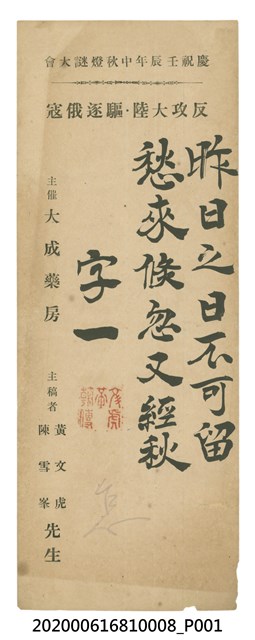 慶祝壬辰年中秋燈謎大會
反攻大陸·驅逐俄寇
昨日之日不可留
愁來倏忽又經秋
字一
主催 大成藥房
主稿者 黃文虎 陳雪峯 先生
202000616810008_P001